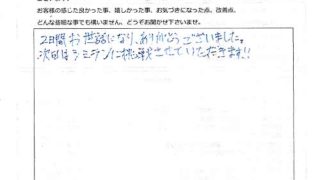 お客様の感じた良かった事、嬉しかった事、お気づきになった点、改善点、
どんな些細な事でも構いません、どうぞお聞かせ下さいませ。
2日間お世話になり、ありがとうございました。
次回はラミチンに挑戦させていただきます!!